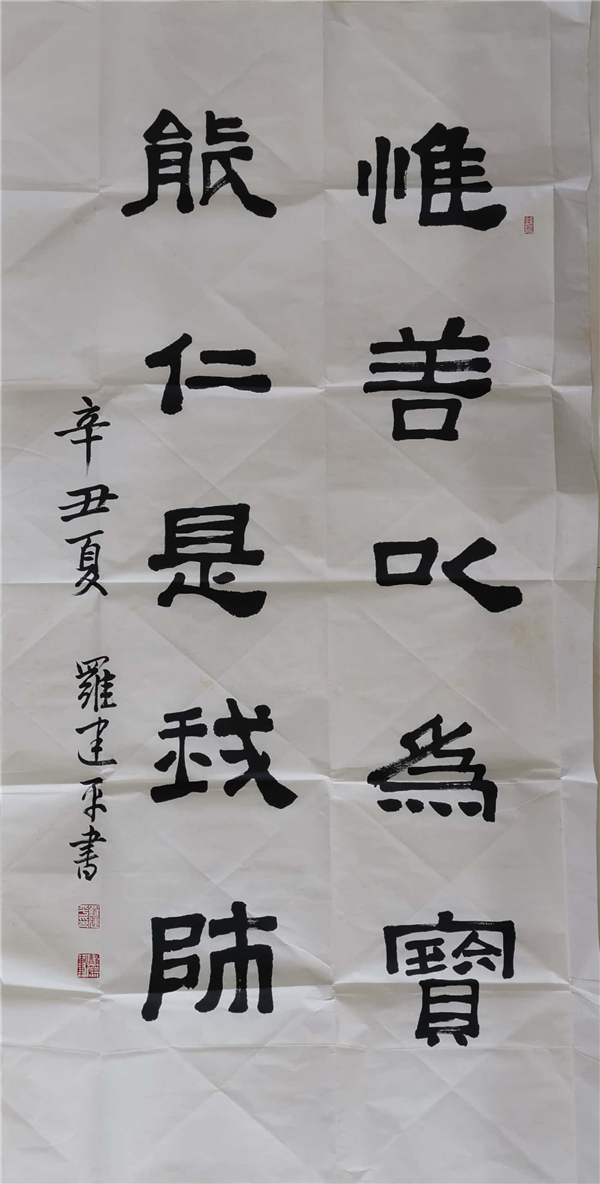 惟善以為寶
能仁是我師
辛丑夏 羅建平書